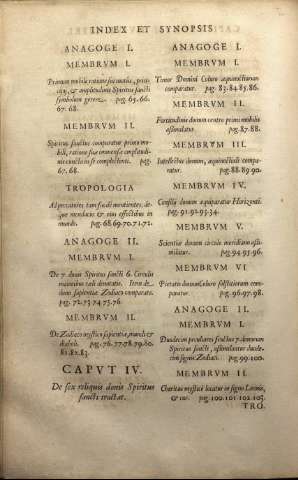 INDEX ET SYNOPSIS
ANAGOGE I.
MEMBRVM I.
Primum mobile ratione sui motus, prio-
ritatis, & amplitudinis Spiritus sancti
symbolum gerere. pag. 65. 66.
67. 68.
MEMBRVM II.
Spiritus sanctus comparatur primo mo-
bili, ratione suæ immensæ amplitudi-
nis cuncta in se complectentis. pag.
67. 68.
TROPOLOGIA
de-
que mendacio & eius effectibus in
mundo. pag. 68. 69. 70. 71. 72.
ANAGOGE II.
MEMBRVM I.
De 7. donis Spiritus sancti 6. Circulis
maioribus cæli denotatis. Item de
dono sapientiæ Zodiaco comparato.
pag. 72. 73. 74. 75. 76.
MEMBRVM II.
De Zodiaco mystico sapientiæ, mundi &
diaboli. pag. 76. 77. 78. 79. 80.
81. 82. 83.
CAPVT IV.
De sex reliquis donis Spiritus
sancti tractat.
ANAGOGE I.
MEMBRVM I.
Timor Domini Coluro æquinoctiorum
comparatur. pag. 83. 84. 85. 86.
MEMBRVM II.
Fortitudinis donum centro primi mobilis
assimilatur. pag. 87. 88.
MEMBRVM III.
Intellectus donum, æquinoctiali compa-
ratur. pag. 88. 89. 90.
MEMBRVM IV.
Consilij donum æquiparatur Horizonti.
pag. 91. 92. 93. 94.
MEMBRVM V.
Scientiæ donum circulo meridiano assi-
milatur. pag. 94. 95. 96.
MEMBRVM VI
Pietatis donum Coluro solstitiorum com-
paratur. pag. 96. 97. 98.
ANAGOGE II.
MEMBRVM I.
Duodecim peculiares fructus 7. donorum
Spiritus sancti, assimilantur duode-
cim signis Zodiaci. pag. 99. 100.
MEMBRVM II.
Charitas mystice locatur in signo Leonis,
pag. 100. 101. 102. 103.
TRO.